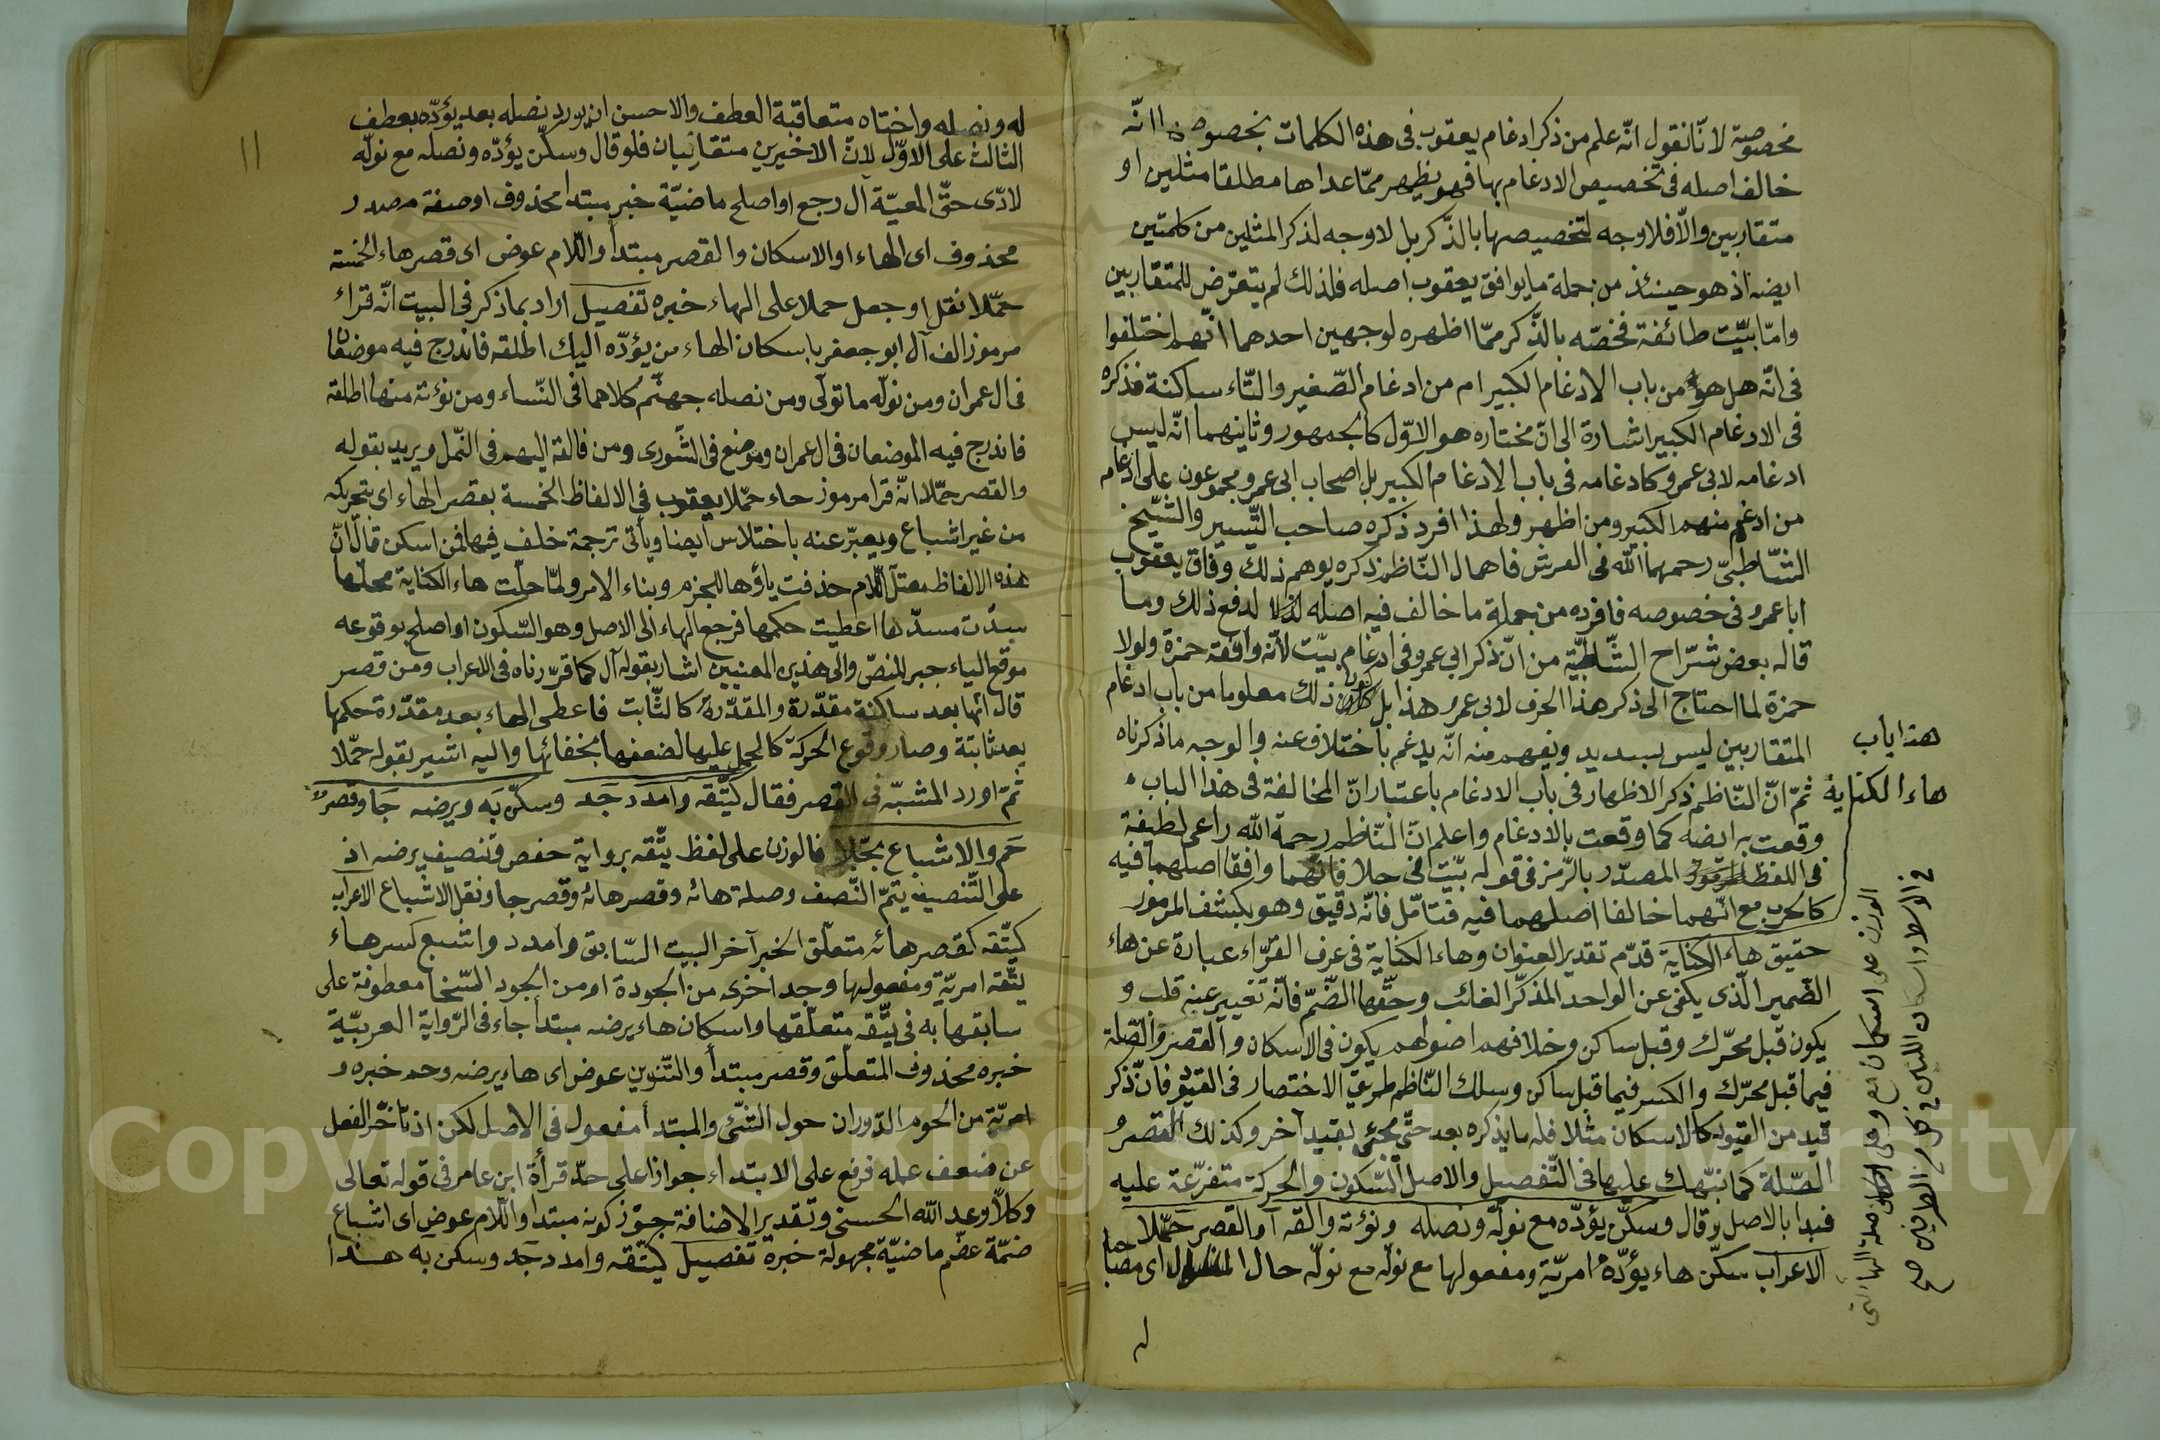 مخصوصة لانّا نقول انّه علم من ذكر ادغام يعقوب فى هذه الكلمات بخصوصها انّه
خالف اصله فى تخصيص الادغام بها فهو يظهر ممّا عداها مطلقا مثلين او
متقاربين والّا فلا وجه لتخصيصها بالذّكر بل لا وجه لذكر المثلين من كلمتين
ايضه اذ هو حينئذ من جملة ما يوافق يعقوب اصله فلذلك لم يتعرّض للمتقاربين
وامّا بيّت طائفة فخصّه بالذّكر ممّا اظهره لوجهين احدهما انّهم اختلفوا
فى انّه هل هو من باب الادغام الكبير ام من ادغام الصّغير والتّاء ساكنة فذكره
فى الادغام الكبير اشارة الى انّ مختاره هو الاوّل كالجمهور وثانيهما انّه ليس
ادغامه لابى عمرو كادغامه فى باب الادغام الكبير بل اصحاب ابى عمرو مجموعون على ادغامه
من ادغم منهم الكبير ومن اظهر ولهذا افرد ذكره صاحب التّيسير والشّيخ
الشّاطبىّ رحمهما الله فى الفرش فاهمال النّاظم ذكره يوهم ذلك وفاق يعقوب
ابا عمرو فى خصوصه فافرده من جملة ما خالف فيه اصله لدفع ذلك وما
قاله بعض شرّاح الشّاطبيّة من انّ ذكر ابى عمرو فى ادغام بيّت لانّه وافقه حمزة ولولا
حمزة لما احتاج الى ذكر هذا الحرف لابى عمرو هذا بل كون ذلك معلوما من باب ادغام
المتقاربين ليس بسديد ويفهم منه انّه يدغم باختلاف عنه والوجه ما ذكرناه
ثمّ انّ النّاظم ذكر الاظهار فى باب الادغام باعتبار انّ المخالفة فى هذا الباب
وقعت به ايضه كما وقعت بالادغام واعلم انّ النّاظم رحمة الله راعى لطيفة
فى اللفظ المصدّر بالرّمز فى قوله بيّت فى حلا فانّهما وافقا اصلهما فيه
كالحرب مع انّهما خالفا اصلهما فيه فتامّل فانّه دقيق وهو بكشف الرموز
حقيق هاء الكناية قدّم تقدير العنوان وهاء الكناية فى عرف القرّاء عبارة عن هاء
الضّمير الّذى يكنى عن الواحد المذكّر الغائب وحقّها الضّمّ فانّه تغيير عنه قلب و
يكون قبل محرّك وقبل ساكن وخلافهم اصولهم يكون فى الاسكان والقصر والصّلة
فيما قبل محرّك والكسر فيما قبل ساكن وسلك النّاظم طريق الاختصار فى القيود فانّ ذكر
قيد من القيود كالاسكان مثلا فله ما يذكره بعد حتّى يجئ بقيد آخر وكذلك القصر و
الصّلة كما ننبّهك عليها فى التّفصيل والاصل السّكون والحركة متفرّعة عليه
فبدا بالاصل وقال وسكّن يؤدّه مع نولّه ونصله ونؤته والقه آ والقصر حمّلا
الاعراب سكّن هاء يؤدّه امريّة ومفعولها مع نولّه مع نولّه حال اى مصاحبا
هذا باب
هاء الكناية
له
له ونصله واختاه متعاقبة العطف والاحسن ان يورد نصله بعد يؤدّه بعطف
الثالث على الاوّل لانّ الاخيرين متقاربيان فلو قال وسكّن يؤدّه ونصله مع نولّه
لادّى حقّ المعيّة آل رجع او اصلح ماضيّة خبر مبتدا محذوف او صفة مصدر
محذوف اى الهاء او الاسكان والقصر مبتدأ واللّام عوض اى قصر هاء الخمسة
حمّلا نقل او جعل حملا على الهاء خبره تفصيل اراد بما ذكر فى البيت انّه قراء
مرموز الف آل ابو جعفر باسكان الهاء من يؤدّه اليك اطلقه فاندرج فيه موضعان
فى ال عمران ومن نولّه ما تولّى ومن نصله جهنّم كلاهما فى النّساء ومن نؤته منها اطلقة
فاندرج فيه الموضعان فى ال عمران وموضع فى الشّورى ومن فالقه اليهم فى النّمل ويريد بقوله
والقصر حمّلا انّه قرا مرموز حاء حمّلا يعقوب فى الالفاظ الخمسة بقصر الهاء اى بتحريكه
من غير اشباع ويعبّر عنه باختلاس ايضا ويأتى ترجمة خلف فيها فمن اسكن قال انّ
هذه الالفاظ معتل اللّام حذفت ياؤها للجزم وبناء الامر ولمّا حلّت هاء الكناية محلّها
سدّت مسدّها اعطيت حكمها فرجع الهاء الى الاصل وهو السّكون او اصلح بوقوعه
موقع الياء جبر للنصّ والى هذين المعنيين اشار بقوله آل كما قرّرناه فى الاعراب ومن قصر
قال انّها بعد ساكنة مقدّرة والمقدّرة كالثّابت فاعطى الهاء بعد مقدّرة حكمها
بعد ثابتة وصار وقوع الحركة كالحمل عليها لضعفها بخفائها واليه اشير بقوله حمّلا
ثمّ اورد المشبّه فى القصر فقال كيتّقه وامدد جد وسكّن به ويرضه جا وقصر
حم والاشباع بجّلا فالوزن على لفظ يتّقه برواية حفص وتنصيف يرضه اذ
على التّنصيف يتمّ النّصف وصلة هائه وقصر هائه وقصر جا ونقل الاشباع الاعراب
كيتّقه كقصر هائه متعلّق الخبر آخر البيت السّابق وامدد واشبع كسر هاء
يتّقه امريّة ومفعولها وجد اخرى من الجودة او من الجود السّخا معطوفة على
سابقها به فى يتّقه متعلّقها واسكان هاء يرضه مبتدأ جاء فى الرّواية العربيّة
خبره محذوف المتعلّق وقصر مبتدأ والتّنوين عوض اى هاء يرضه وحم خبره و
امريّة من الحوم الدّوران حول الشّئ والمبتدأ مفعول فى الاصل لكن اذ تأخّر الفعل
عن ضعف عمله فرفع على الابتداء جوازا على حدّ قرأة ابن عامر فى قوله تعالى
وكلّا وعد الله الحسنى وتقدير الاضافة جوّز كونه مبتدا واللّام عوض اى اشباع
ضمّة عظّم ماضيّة مجهولة خبره تفصيل كيتّقه وامدد جد وسكن به هذا
١١
Copyright © King Saud University